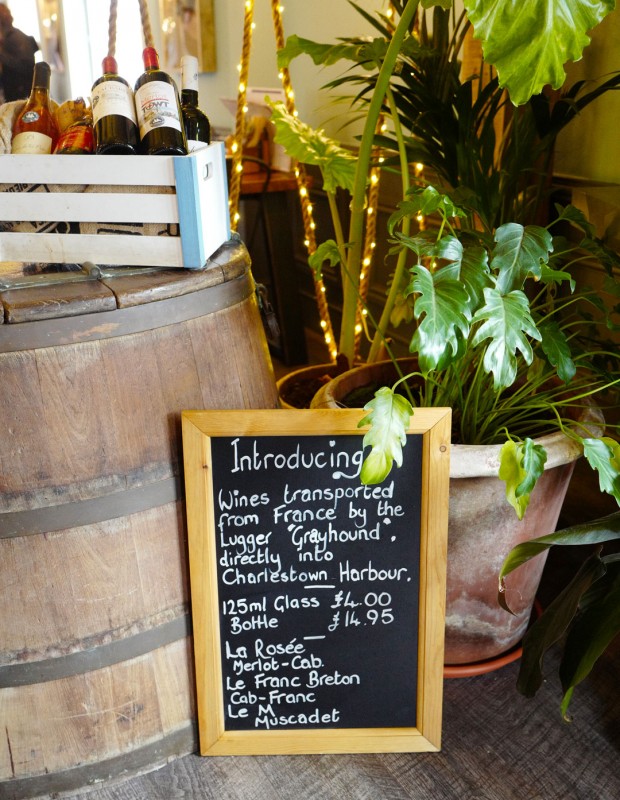 Introducing
Wines transported
from France by the
Lugger "Grayhound",
directly into
Charlestown Harbour.
125ml Glass £4.00
Bottle £14.95
La Rosée
Merlot-Cab.
Le Franc Breton
Cab-Franc
Le M
Muscadet